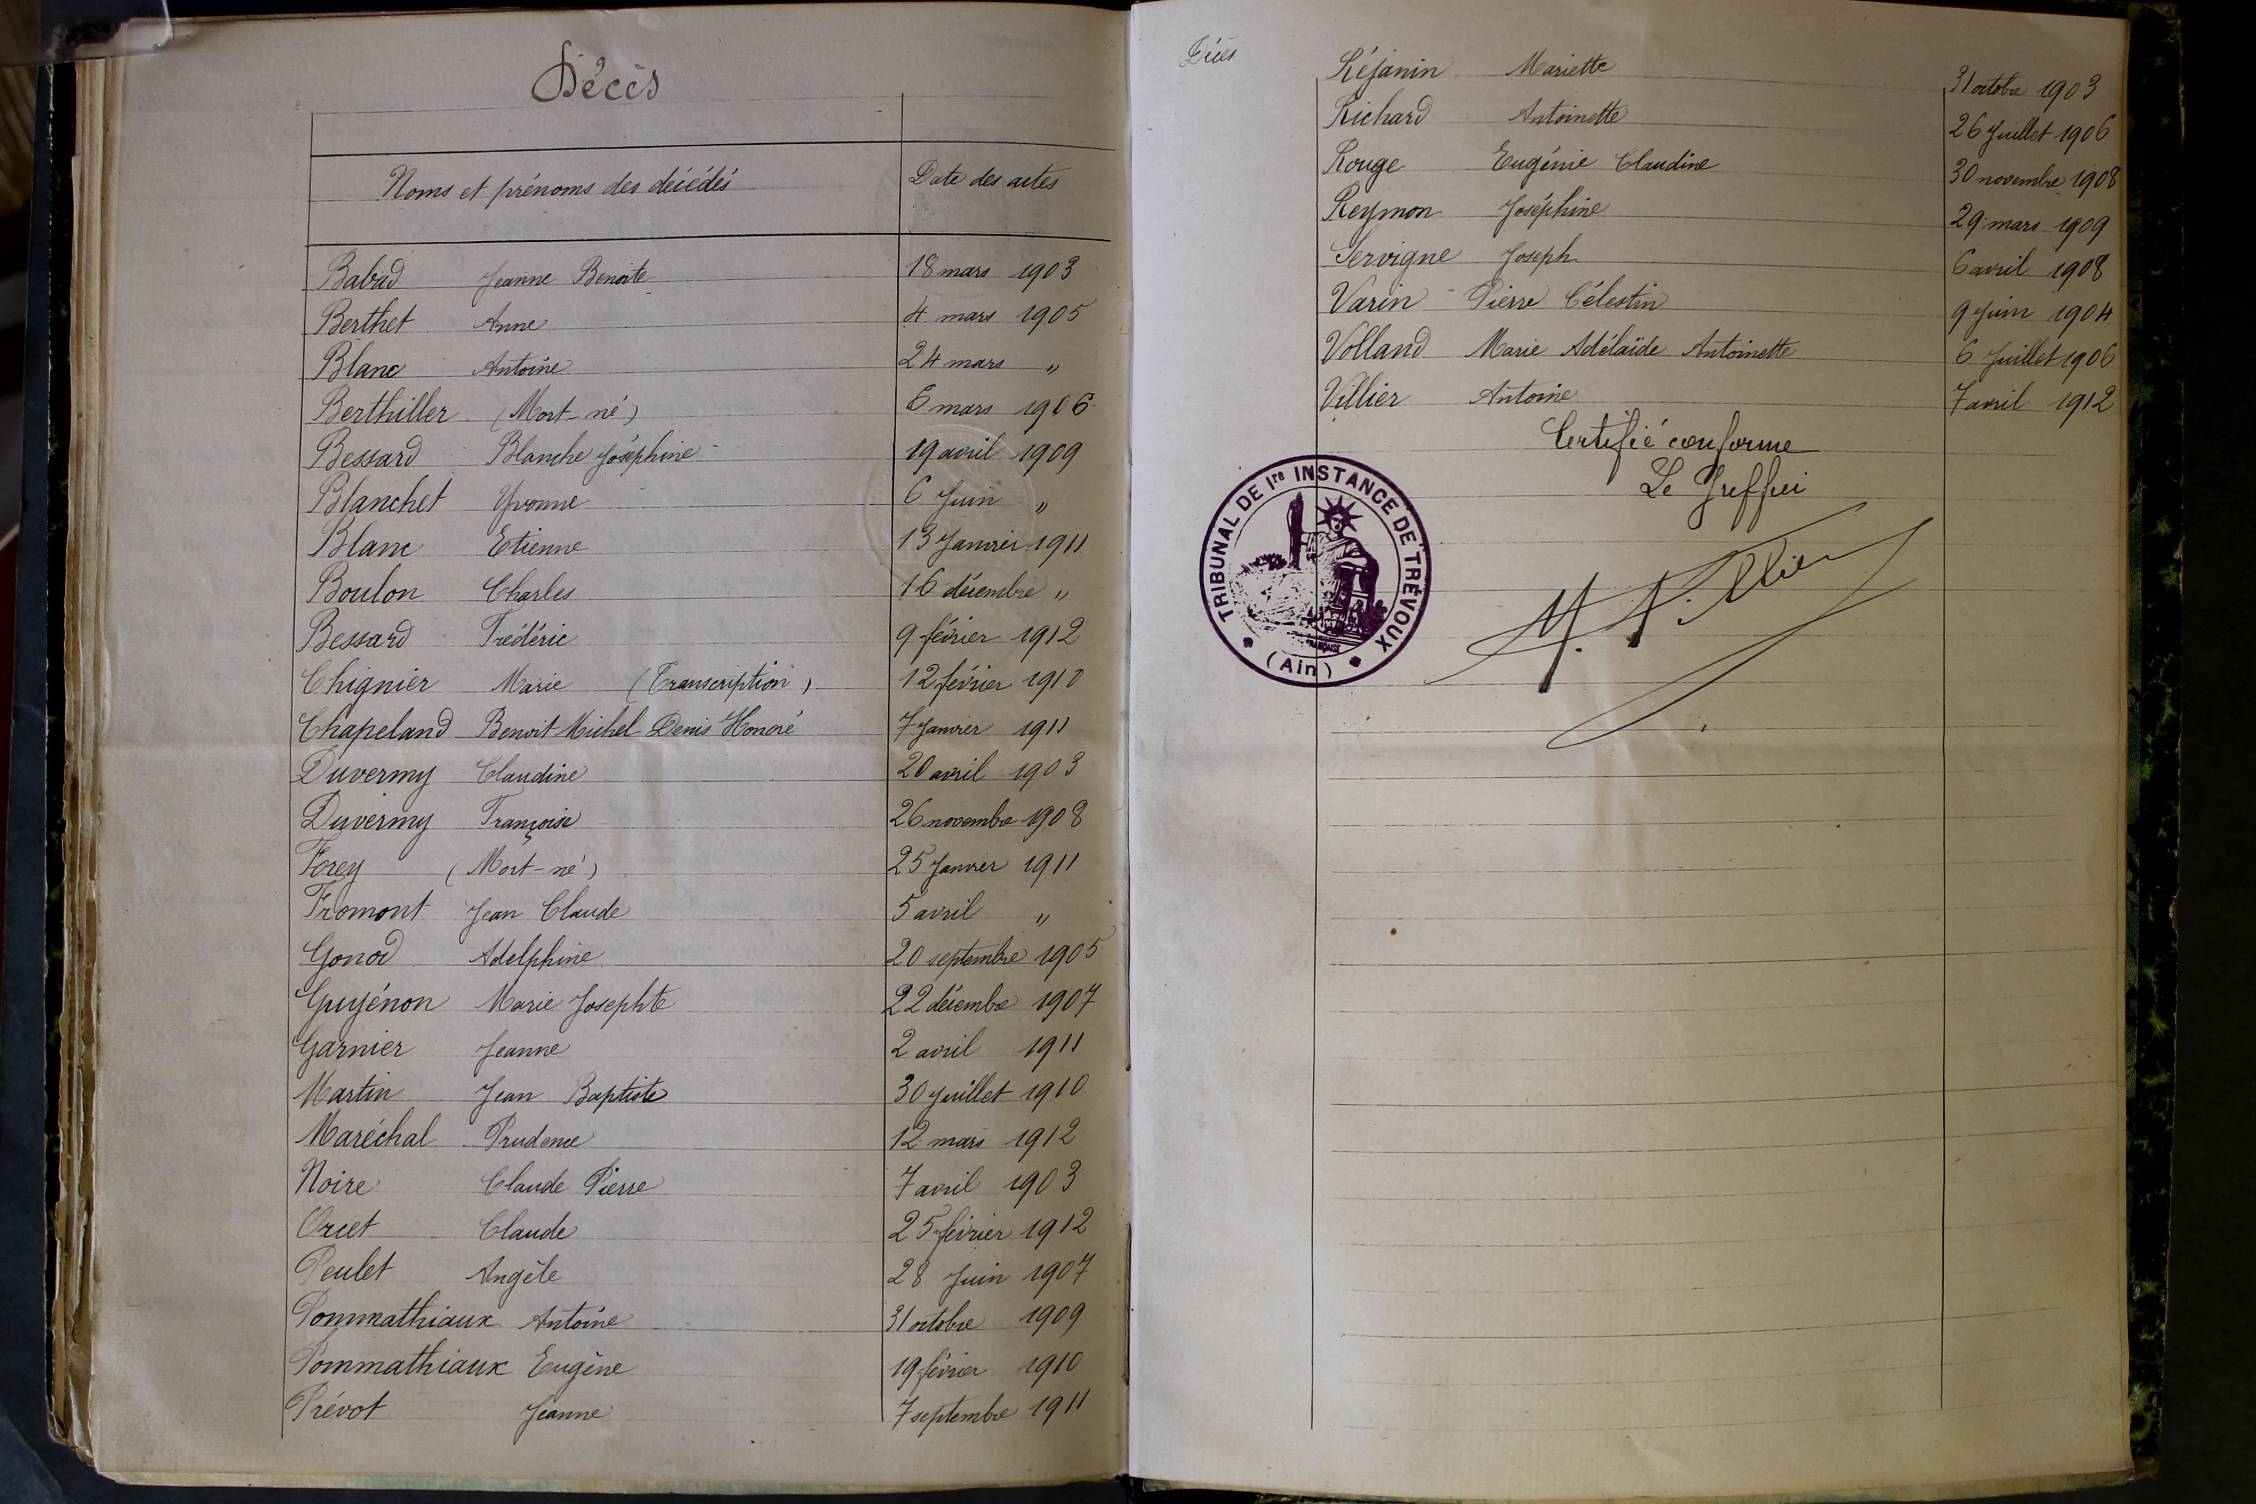 Décès
Noms et prénoms des décédés Date des actes
Babad Jeanne Benoite 18 mars 1903
Berthet Anne 4 mars 1905
Blanc Antoine 24 mars "
Berthiller (Mort-né) 6 mars 1906
Bessard Blanche Joséphine 19 avril 1909
Blanchet Yvonne 6 Juin "
Blanc Etienne 13 Janvier 1911
Boulon Charles 16 décembre "
Bessard Frédéric 9 février 1912
Chignier Marie (Transcription) 12 février 1910
Chapeland Benoit Michel Denis Honoré 7 Janvier 1911
Duvermy Claudine 20 avril 1903
Duvermy Françoise 26 novembre 1908
Forey (Mort-né) 25 Janvier 1911
Fromont Jean Claude 5 avril "
Gonod Adelphine 20 septembre 1905
Guyénon Marie Josephte 22 décembre 1907
Garnier Jeanne 2 avril 1911
Martin Jean Baptiste 30 Juillet 1910
Maréchal Prudence 12 mars 1912
Noire Claude Pierre 7 avril 1903
Orcet Claude 25 février 1912
Peulet Angèle 28 Juin 1907
Pommathiaux Antoine 31 octobre 1909
Pommathiaux Eugène 19 février 1910
Prévot Jeanne 7 septembre 1911
Décès
Réjanin Mariette 31 octobre 1903
Richard Antoinette 26 Juillet 1906
Rouge Eugénie Claudine 30 novembre 1908
Reymon Joséphine 29 mars 1909
Servigne Joseph 6 avril 1908
Varin Pierre Célestin 9 Juin 1904
Volland Marie Adélaïde Antoinette 6 Juillet 1906
Villier Antoine 7 avril 1912
Certifié conforme
Le Greffier
TRIBUNAL DE Ire INSTANCE DE TRÉVOUX
(Ain)